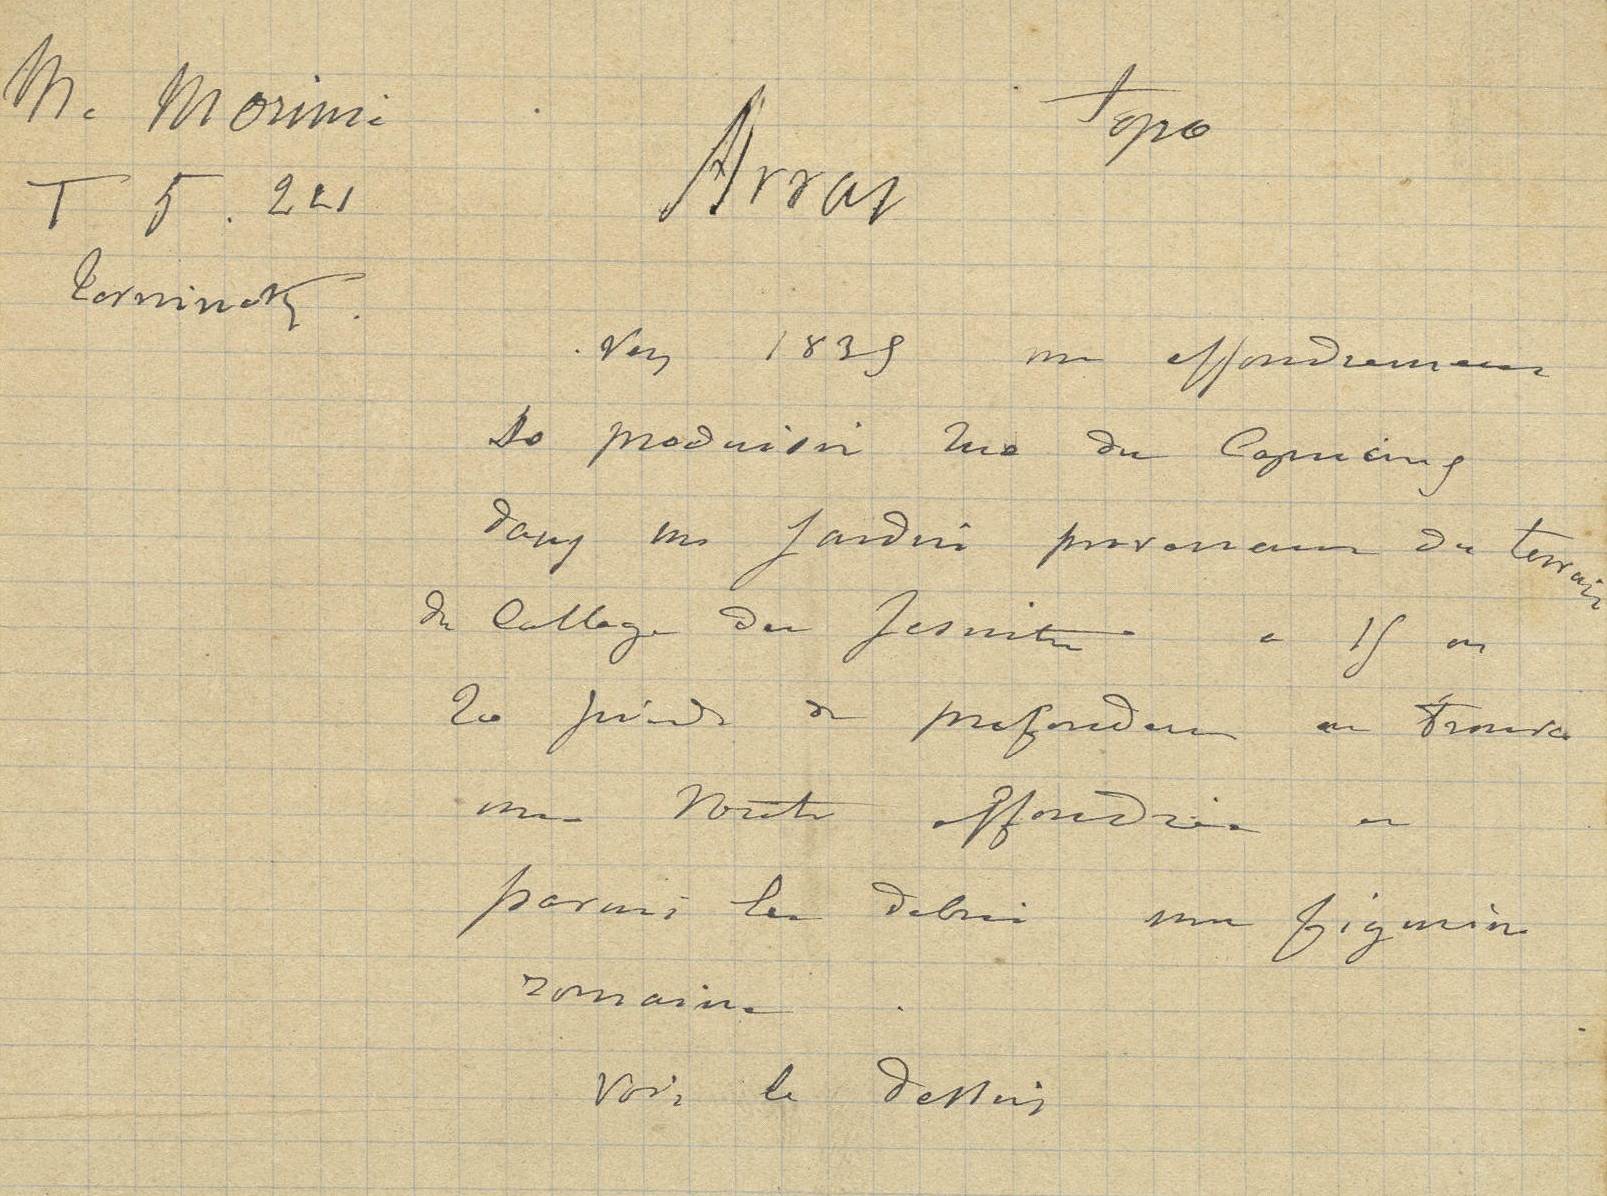 M. Morini
Topo
Arras
T 5. 221
Terninck.
Vers 1835 un effondrement
se produisit rue des Capucins
dans un jardin provenant du terrain
du College des Jesuites a 15 ou
20 pieds de profondeur on trouva
une voute effondrée et
parmi les debris une figurine
romaine.
Voir le dessin